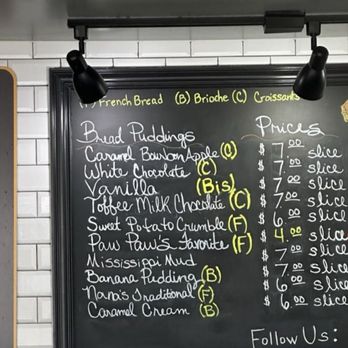 (F) French Bread (B) Brioche (C) Croissants
Bread Puddings Prices
Caramel Bourbon Apple (C) $7.00 slice
White Chocolate (C) $7.00 slice
Vanilla (Bis) $7.00 slice
Toffee Milk Chocolate (C) $7.00 slice
Sweet Potato Crumble (F) $6.00 slice
Paw Paw's Favorite (F) $4.00 slice
Mississippi Mud $7.00 slice
Banana Pudding (B) $7.00 slice
Nana's Traditional (F) $6.00 slice
Caramel Cream (B) $6.00 slice
Follow Us: